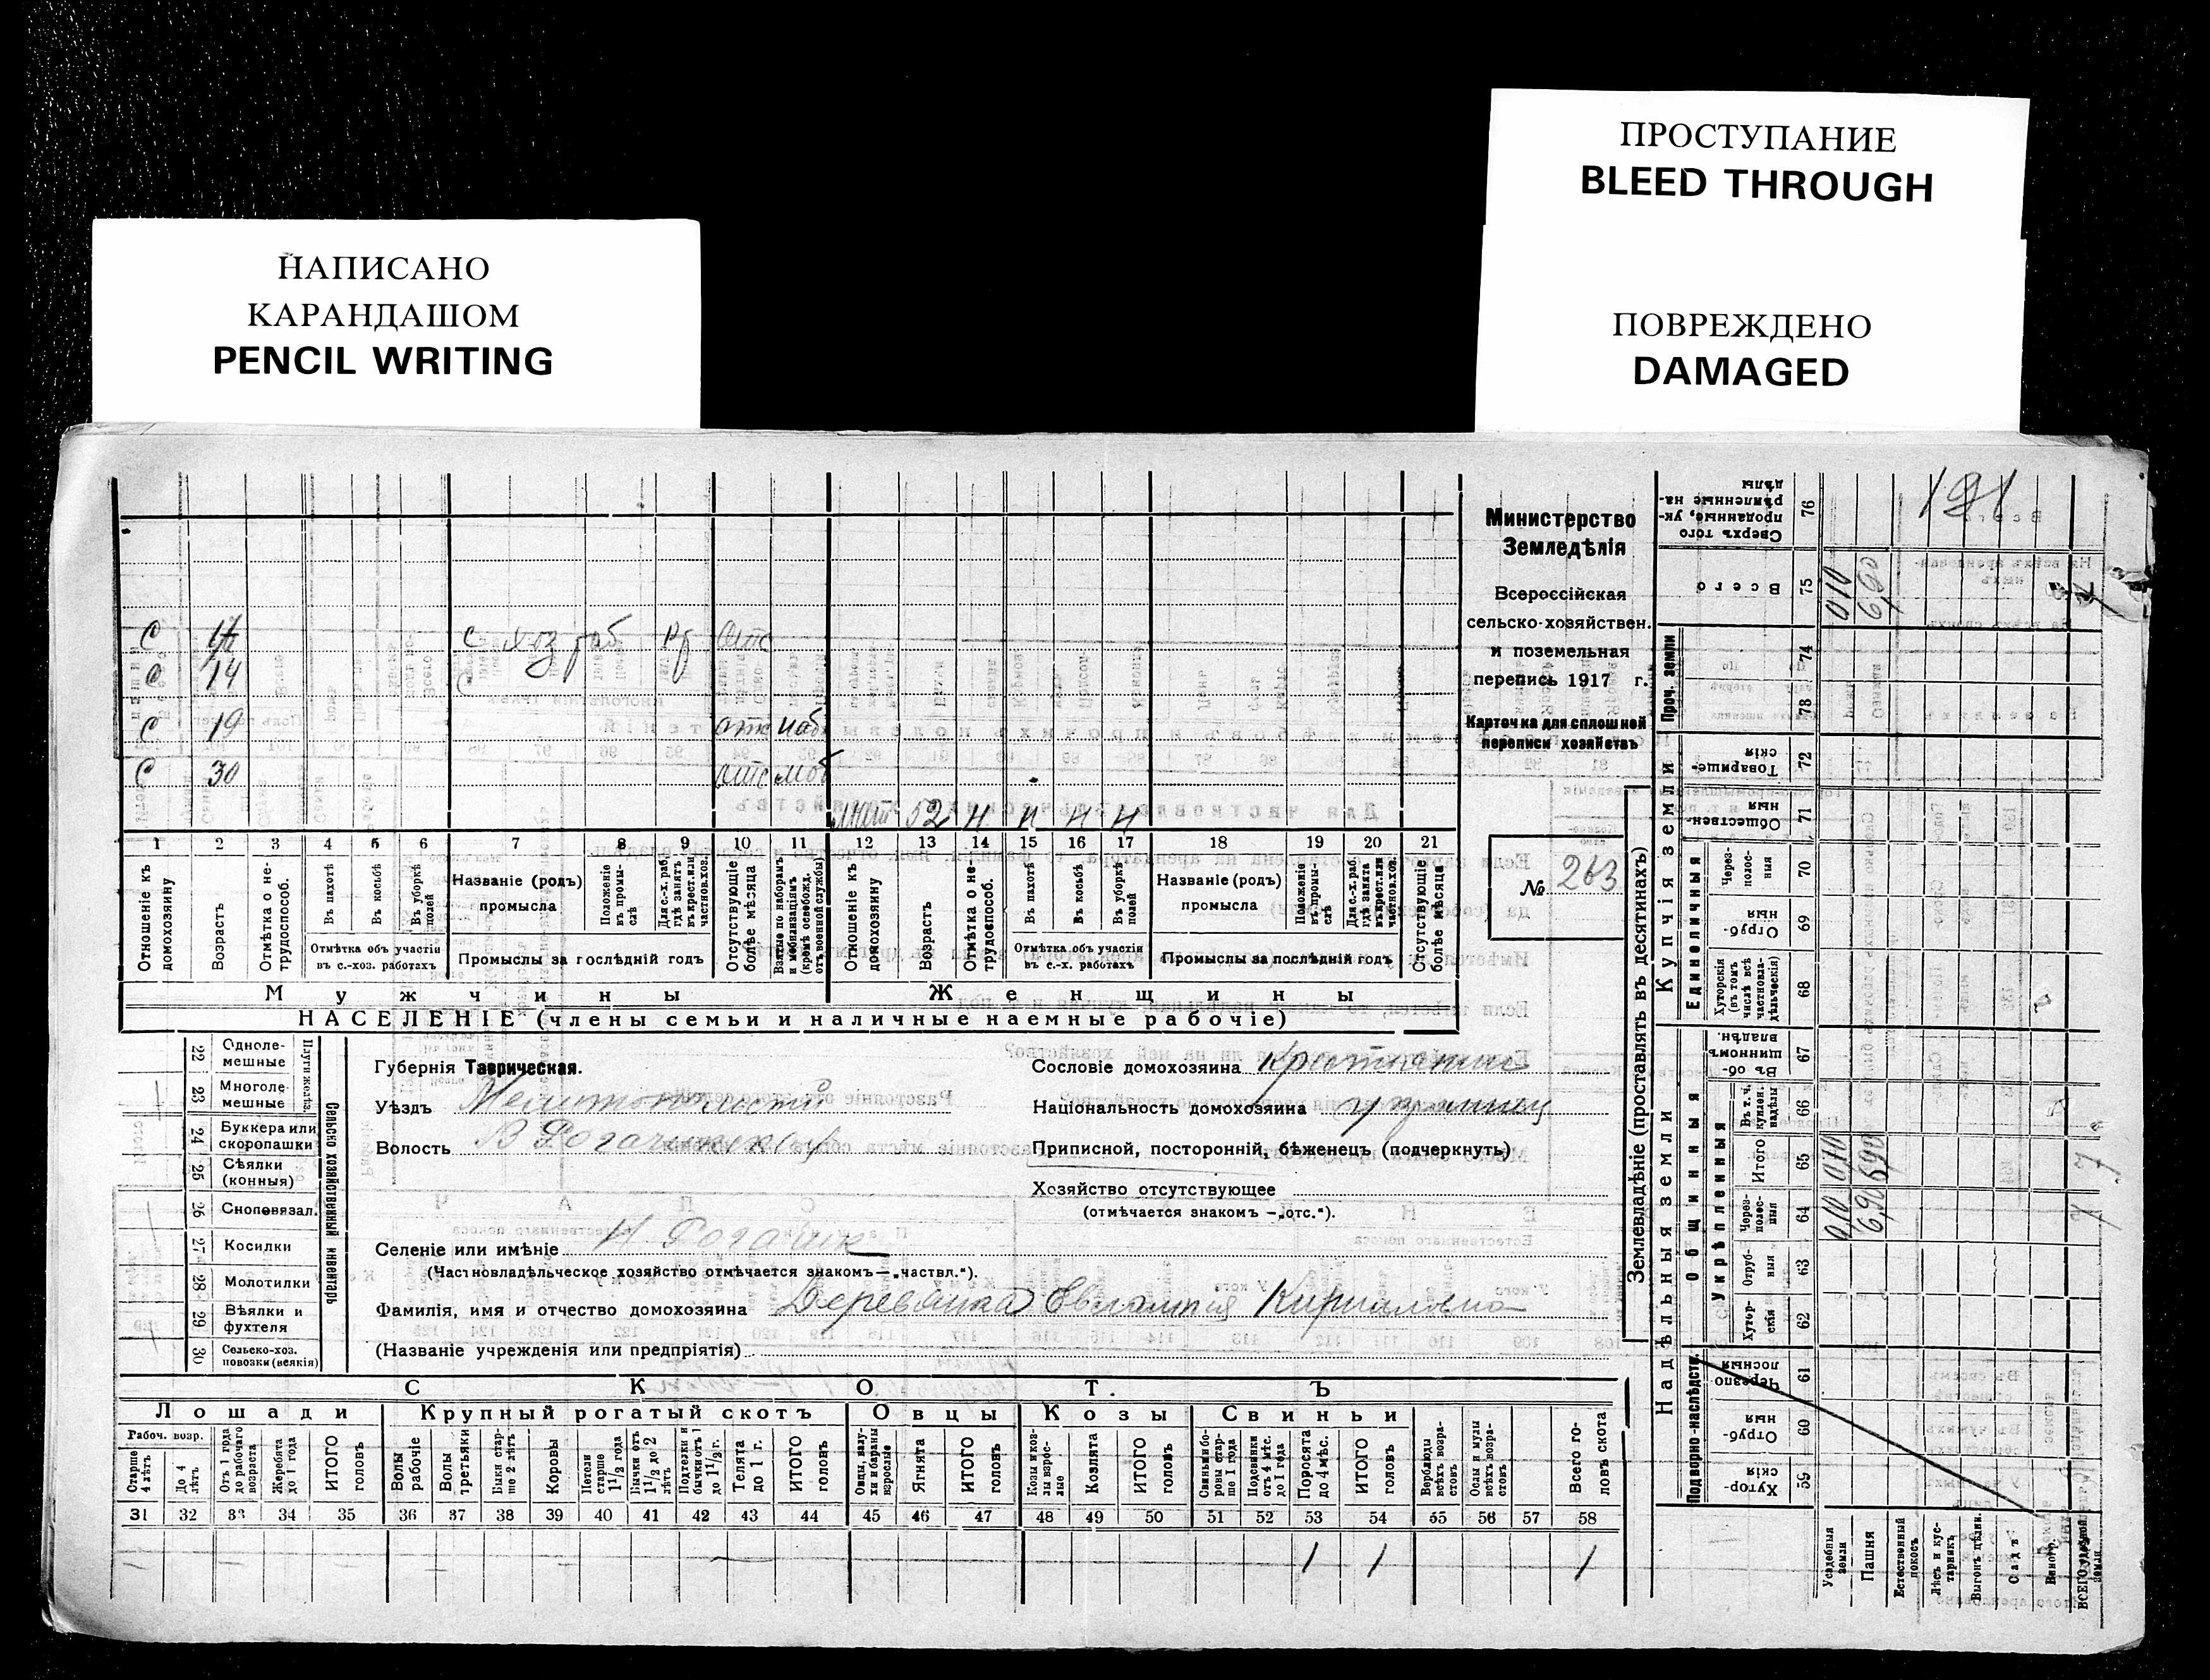 ПРОСТУПАНИЕ
BLEED THROUGH
НАПИСАНО
КАРАНДАШОМ
PENCIL WRITING
ПОВРЕЖДЕНО
DAMAGED
191
Министерство
Земледѣлія
Всероссійская
сельско-хозяйствен.
и поземельная
перепись 1917 г.
Карточка для сплошной
переписи хозяйствъ
№ 263
С с хоз раб отс
С 14
С 19 отс моб
С 30 отс моб
мат 52 н н н н
1 2 3 4 5 6 7 8 9 10 11 12 13 14 15 16 17 18 19 20 21
Отношеніе къ домохозяину
Возрастъ
Отмѣтка о не-трудоспособ.
Въ пахотѣ
Въ косьбѣ
Въ уборкѣ полей
Отмѣтка объ участіи
въ с.-хоз. работахъ
Названіе (родъ)
промысла
Положеніе въ промы-слѣ
Для с.-х. раб. гдѣ занятъ въ крест. или частнов. хоз.
Промыслы за послѣдній годъ
Отсутствующіе болѣе мѣсяца
Взятые по наборамъ и мобилизаціямъ (кромѣ освобожд. отъ военной службы)
Отношеніе къ домохозяину
Возрастъ
Отмѣтка о не-трудоспособ.
Въ пахотѣ
Въ косьбѣ
Въ уборкѣ полей
Отмѣтка объ участіи
въ с.-х. работахъ
Названіе (родъ)
промысла
Положеніе въ промы-слѣ
Для с.-х. раб. гдѣ занята въ крест. или частнов. хоз.
Промыслы за послѣдній годъ
Отсутствующіе болѣе мѣсяца
Мужчины Женщины
НАСЕЛЕНІЕ (члены семьи и наличные наемные рабочіе)
Сельско хозяйственный инвентарь
Плуги желѣз.
22 Одноле-мешные
23 Многоле-мешные
24 Буккера или скоропашки
25 Сѣялки (конныя)
26 Сноповязал.
27 Косилки
28 Молотилки
29 Вѣялки и фухтеля
30 Сельско-хоз. повозки (всякія)
Губернія Таврическая.
Уѣздъ Мелитопольскій
Волость В Рогачикская
Селеніе или имѣніе Н Рогачик
(Частновладѣльческое хозяйство отмѣчается знакомъ — „частвл.“).
Фамилія, имя и отчество домохозяина Деревянка Евлампія Кирилловна
(Названіе учрежденія или предпріятія)
Сословіе домохозяина крестьянин
Національность домохозяина украинец
Приписной, посторонній, бѣженец (подчеркнуть)
Хозяйство отсутствующее
(отмѣчается знакомъ — „отс.“).
СКОТЪ
Лошади Крупный рогатый скотъ Овцы Козы Свиньи
Рабоч. возр.
Старше 4 лѣтъ
До 4 лѣтъ
Отъ 1 года до рабочаго возраста
Жеребята до 1 года
ИТОГО головъ
Волы рабочіе
Волы третьяки
Быки стар-ше 2 лѣтъ
Коровы
Нетели старше 1 1/2 года
Бычки отъ 1 1/2 до 2 лѣтъ
Подтелки и бычки отъ 1 до 1 1/2 г.
Телята до 1 г.
ИТОГО головъ
Овцы, валу-хи и бараны взрослые
Ягнята
ИТОГО головъ
Козы и коз-лы взрос-лые
Козлята
ИТОГО головъ
Свиньи и бо-ровы стар-ше 1 года
Подсвинки отъ 4 мѣс. до 1 года
Поросята до 4 мѣс.
ИТОГО головъ
Верблюды всѣхъ возра-стовъ
Ослы и мулы всѣхъ возра-стовъ
Всего го-ловъ скота
31 32 33 34 35 36 37 38 39 40 41 42 43 44 45 46 47 48 49 50 51 52 53 54 55 56 57 58
1 1 1
Землевладѣніе (проставлять въ десятинахъ)
Надѣльныя земли
Купчія земли
Проч. земли
Подворно-наслѣдств.
Общинныя
Укрѣпленныя
Единоличныя
Сверхъ того проданные, ук-рѣпленные на-дѣлы 76
Всего 75 0,10 6,90
74
73
Товарище-скія 72
Обществен-ныя 71
Через-полос-ныя 70
Отруб-ныя 69
Хуторскія (въ томъ числѣ всѣ частновла-дѣльческія) 68
Въ об-щинномъ владѣн. 67
Въ т. ч. куплен. надѣлы 66
Итого 65 0,10 6,90
Через-полос-ныя 64 0,10 6,90
Отруб-ныя 63
Хутор-скія 62
Черезпо-лосныя 61
Отруб-ныя 60
Хутор-скія 59
Усадебныя земли
Пашня
Естественный покосъ
Лѣсъ и кус-тарникъ
Выгонъ цѣлин.
Садъ
Виногр.